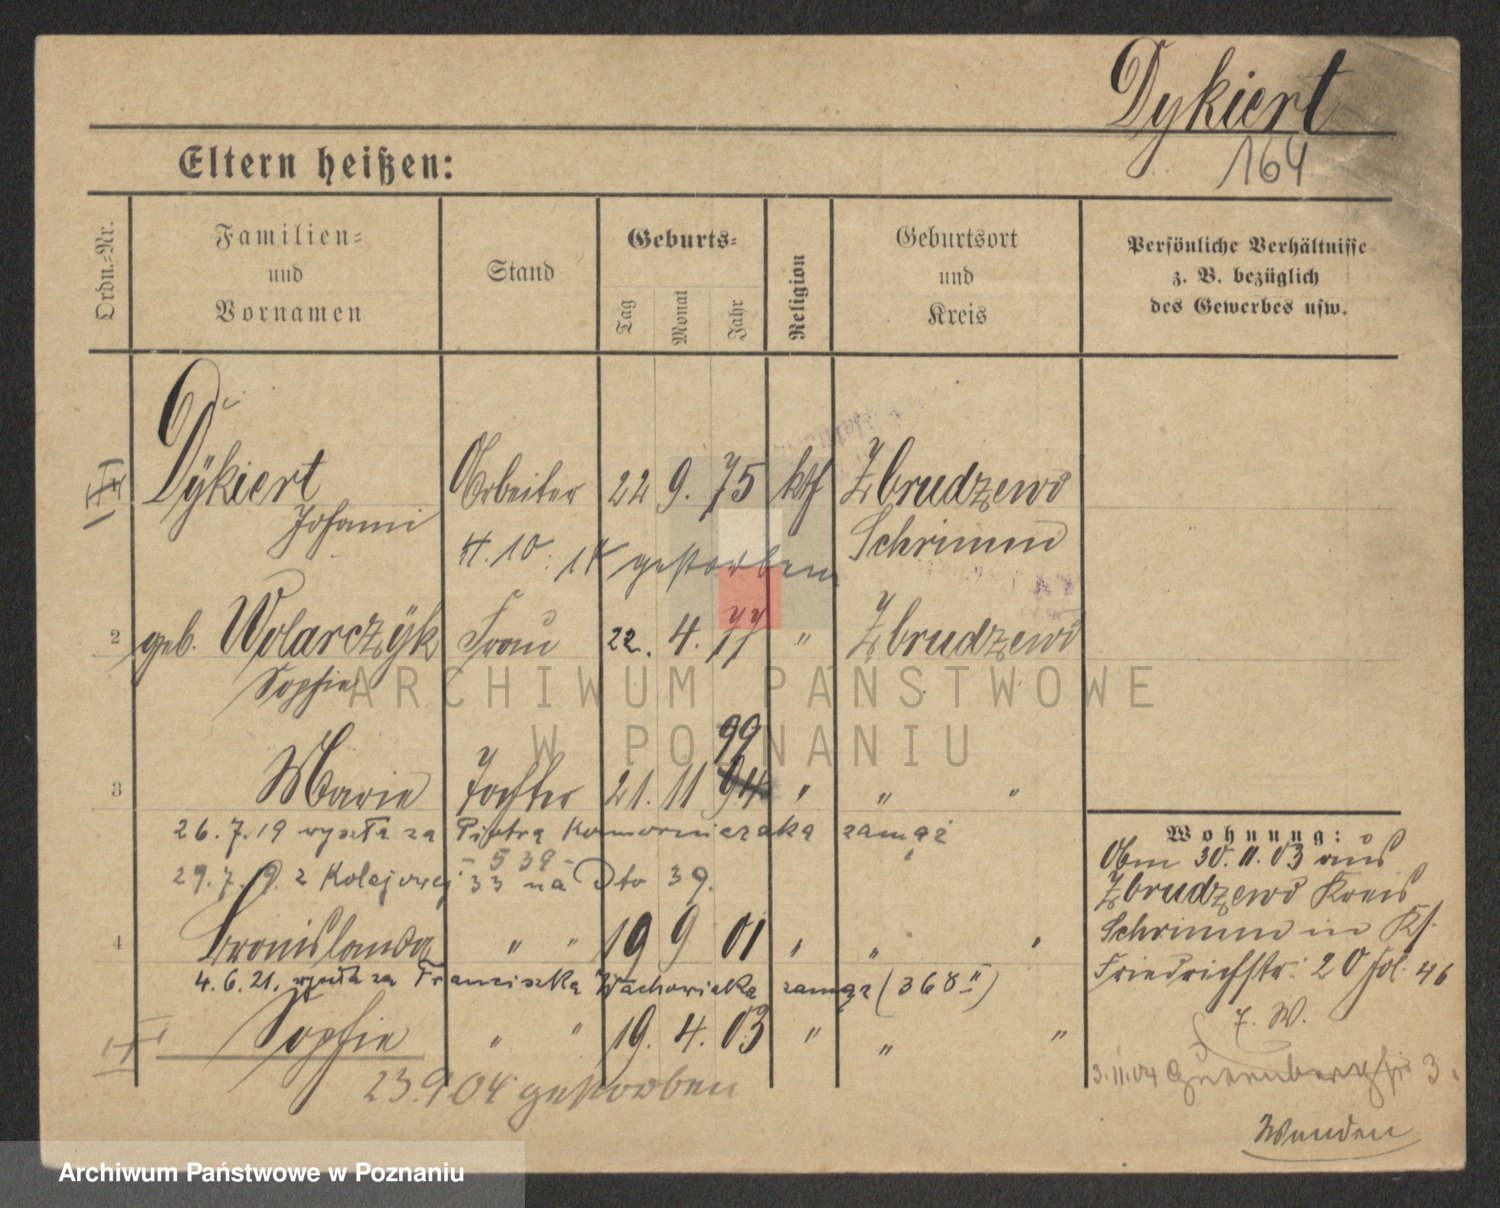 Dykiert
164
Eltern heißen:
Ordn.-Nr.
Familien-
und
Vornamen
Stand
Geburts-
Tag
Monat
Jahr
Religion
Geburtsort
und
Kreis
Persönliche Verhältnisse
z. B. bezüglich
des Gewerbes usw.
Dÿkiert Arbeiter 22 9. 75 kth Zbrudzewo
Johann Schrimm
10. 14 gestorben
2 geb. Wolarczÿk Frau 22. 4. 77 " Zbrudzewo
Sophie
99
3 Marie Tochter 21. 11 94 " " "
26. 7. 19 wyszła za Piotra Komorniczaka zamąż
- 539 -
29. 7. 19. z Kolejowej 33 na Dto 39.
4 Bronislawa " " 19 9 01 " " "
4. 6. 21. wyszła za Franciszka Wachowiaka zamąż (368 II)
Sophie " " 19. 4. 03 " " "
23.9.04 gestorben
Wohnung:
Am 30. 11. 03 aus
Zbrudzewo Kreis
Schrimm in
Friedrichstr. 20 46
F. W.
3. 11. 04 3.
Wanden
ARCHIWUM PAŃSTWOWE
W POZNANIU
Archiwum Państwowe w Poznaniu